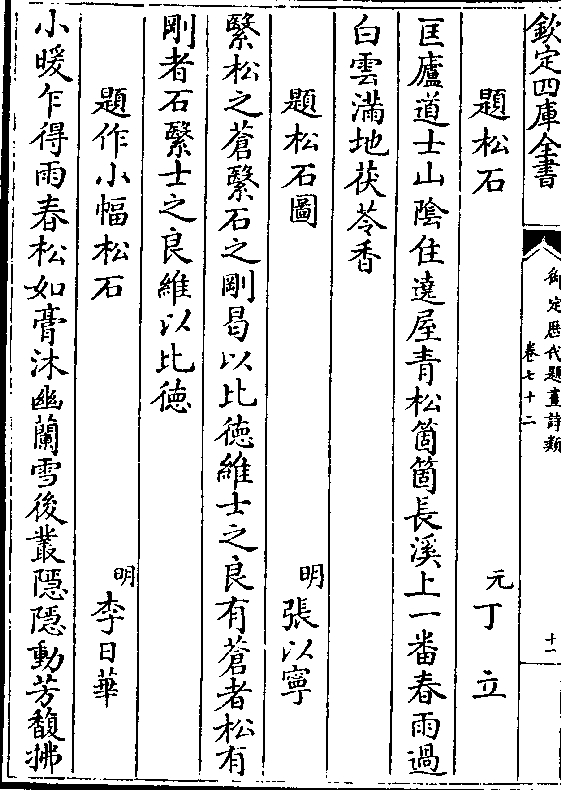 欽定四庫全書
御定歴代題畫詩類
卷七十二
十一
題松石
元丁立
匡廬道士山隂住遶屋青松箇箇長溪上一番春雨過
白雲滿地茯苓香
題松石圖
明張以寧
繄松之蒼繄石之剛曷以比德維士之良有蒼者松有
剛者石繄士之良維以比德
題作小幅松石
明李日華
小暖乍得雨春松如膏沐幽蘭雪後叢隱隱動芳馥拂